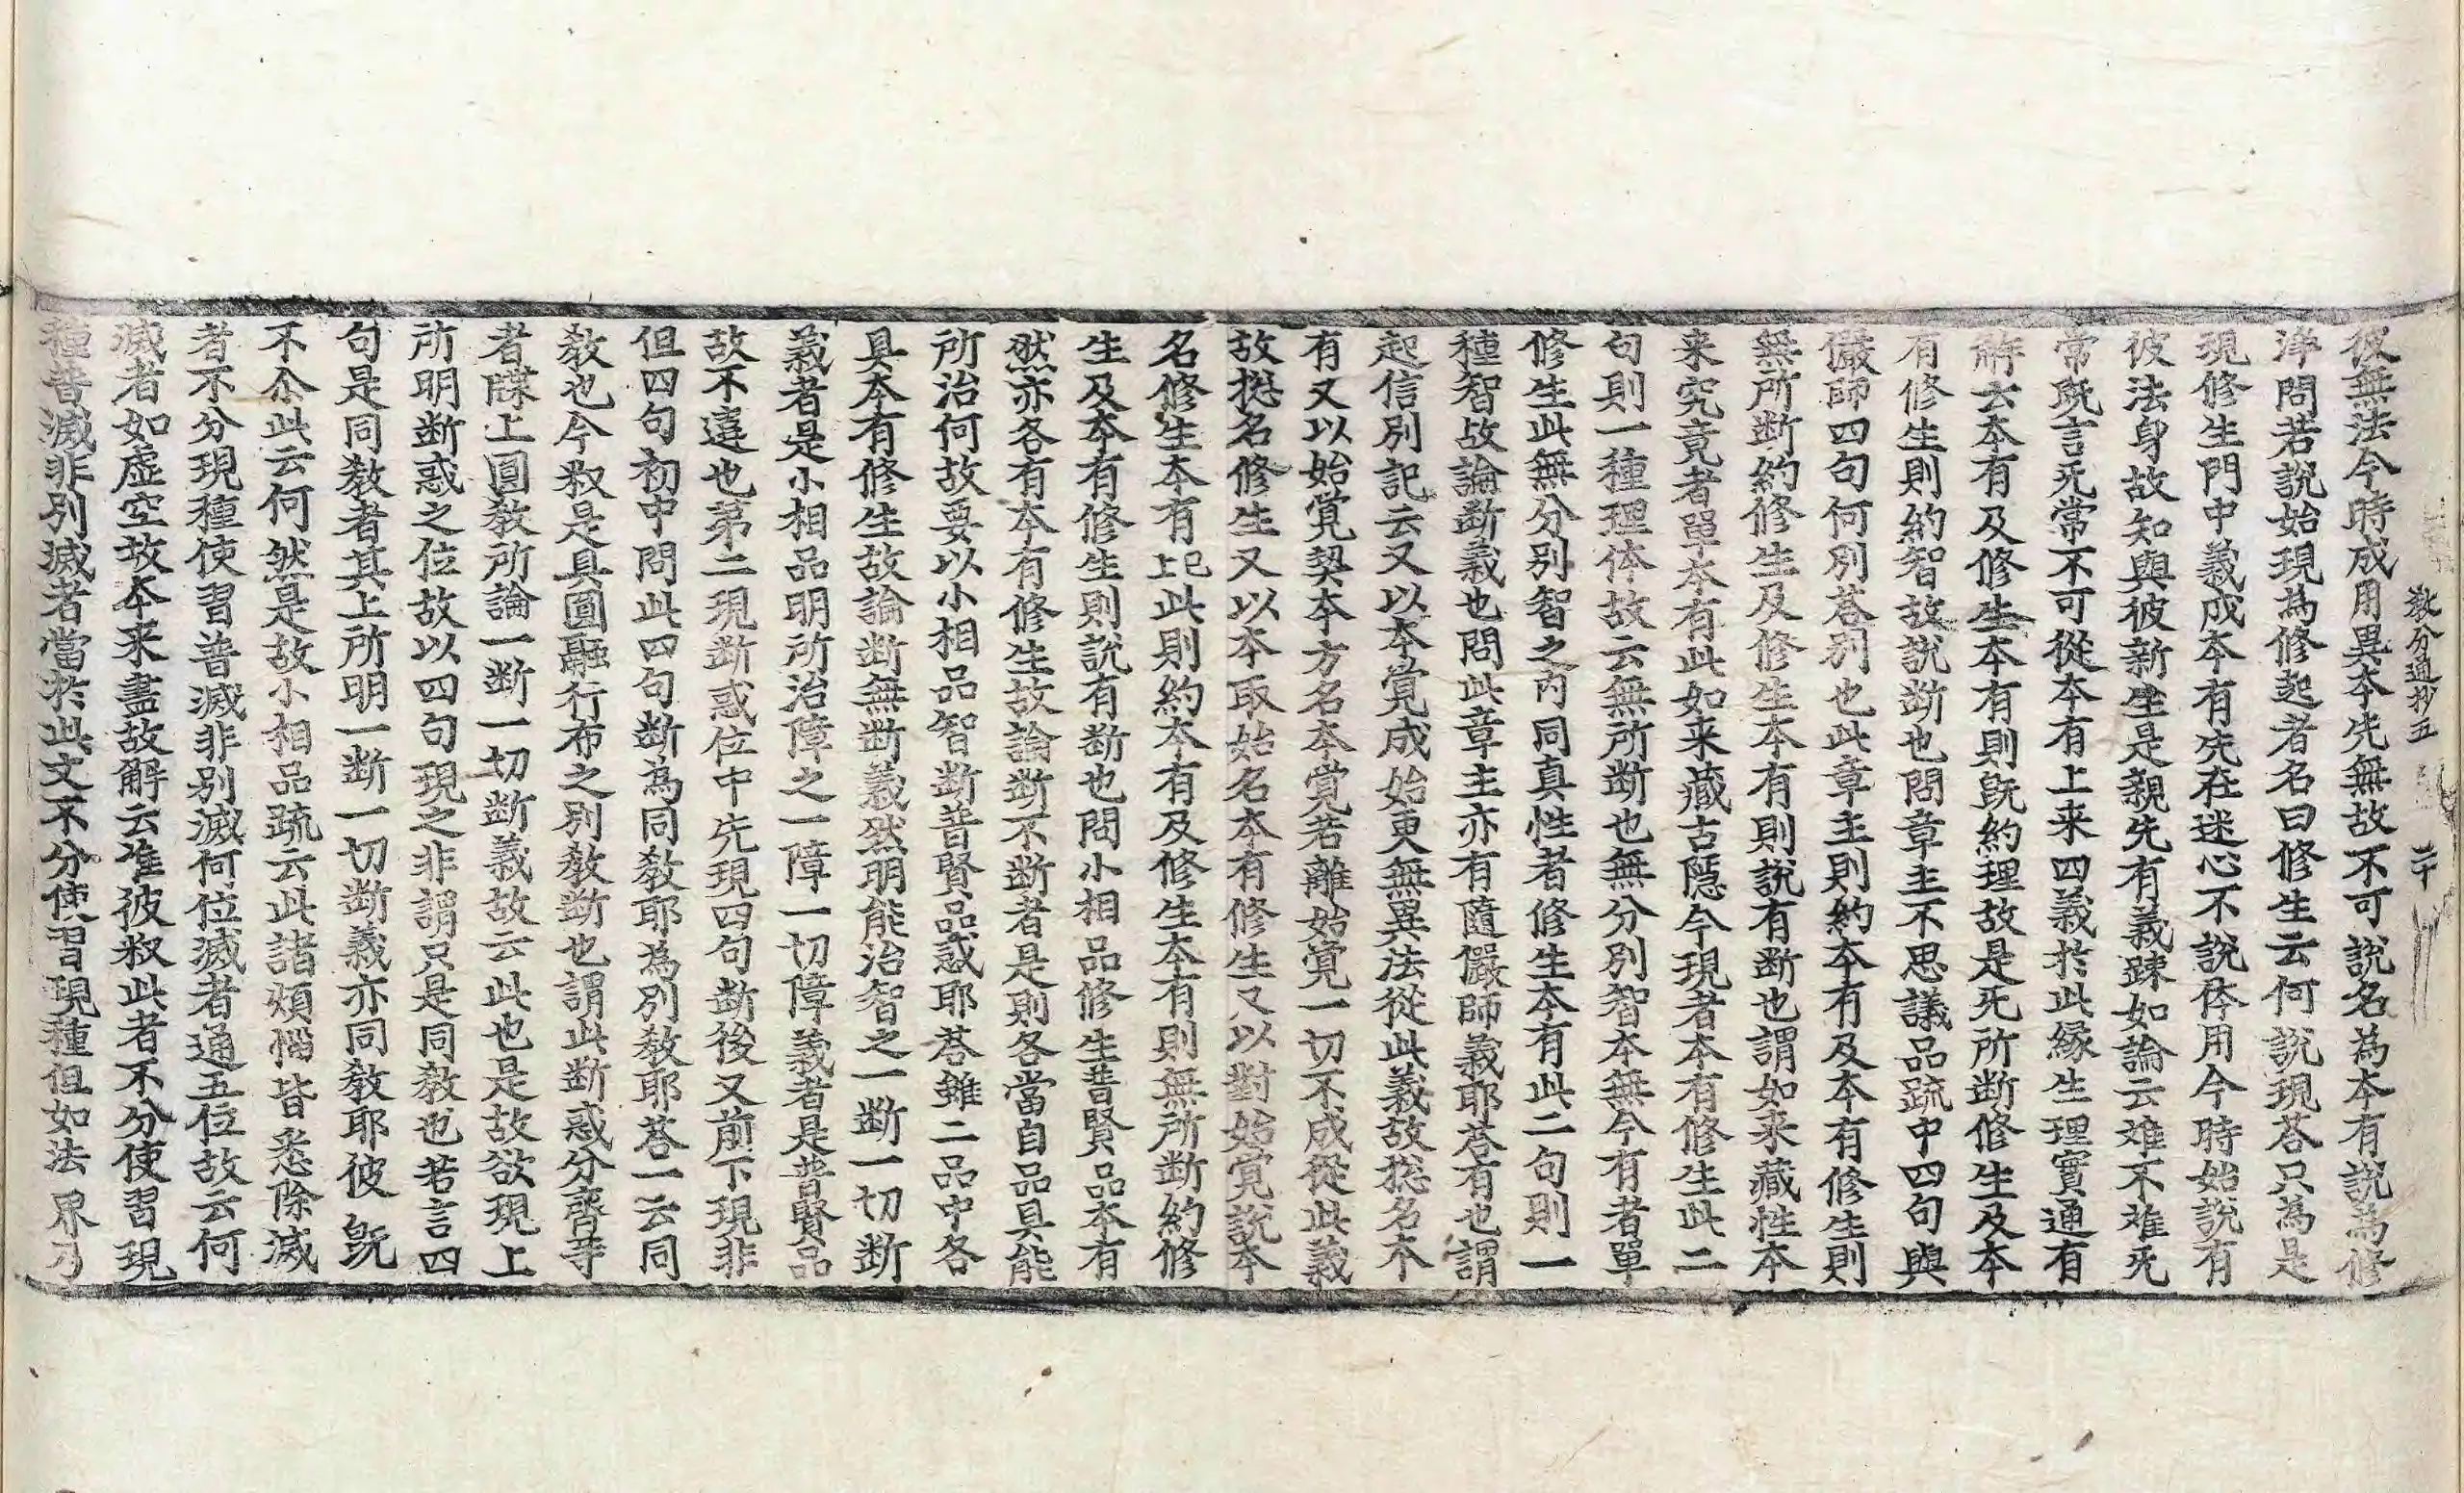 教分通抄五　二十
彼無法今時成用異本先無故不可說名為本有說為修
洋問若說始現為修起者名曰修生云何說現荅只為是
現修生門中義成本有先在迷心不說体用今時始說有
彼法身故知與彼新生是親先有義踈如論云難不難死
常旣言死常不可從本有上来四義於此緣生理實通有
云本有及修生本有則旣約理故是死所斷修生及本
有修生則約智故說斷也問章主不思議品疏中四句與
儼師四句何別荅別也此章主則約本有及本有修生則
無所斷約修生及修生本有則說有斷也謂如来藏性本
来究竟者單本有此如来藏古隱今現者本有修生此二
句則一種理体故云無所斷也無分別智本無今有者單
修生此無分別智之內同真性者修生本有此二句則一
種智故論斷義也問此章主亦有隨儼師義耶荅有也謂
起信別記云又以本覺成始更無異法從此義故捴名本
有又以始覺契本方名本覺若離始覺一切不成從此義
故捴名修生又以本取始名本有修生又以對始覺說本
名修生本有上已此則約本有及修生本有則無所斷約修
生及本有修生則說有斷也問小相品修生普賢品本有
然亦各有本有修生故論斷不斷者是則各當自品具能
所治何故要以小相品智斷普賢品惑耶荅雖二品中各
具本有修生故論斷無斷義然明能治智之一斷一切斷
義者是小相品明所治障之一障一切障義者是普賢品
故不違也第二現斷惑位中先現四句斷後又前下現非
但四句初中問此四句斷為同敎耶為別敎耶荅一云同
敎也今釈是具圓融行布之別敎斷也謂此斷惑分齊等
者牒上圓敎所論一斷一切斷義故云此也是故欲現上
所明斷惑之位故以四句現之非謂只是同敎也若言四
句是同敎者其上所明一斷一切斷義亦同敎耶彼旣
不尒此云何然是故小相品疏云此諸煩惱皆悉除滅
者不分現種使習普滅非別滅何位滅者通五位故云何
滅者如虛空故本来盡故解云准彼釈此者不分使習現
種普滅非別滅者當於此文不分使習現種但如法界乃